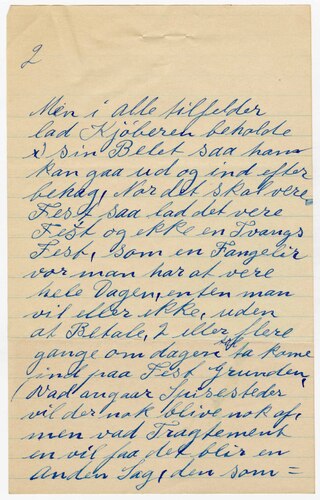 2
Men i alle tilfelder
lad Kjöberen beholde
sin Belet saa han
kan gaa ud og ind efter
behag, Nor det skal vere
Fest saa lad det vere
Fest og ekke en Tvangs
Fest, som en Fangelir
vor man har at vere
hele Dagen, enten man
vil eller ekke, uden
at Betale, 2 eller flere
gange om dagen for ta kome
ind paa Fest Grunden,
(Vad angaar Spisesteder
vil der nok blive nok of,
men vad Tragtement
en vil faa det blir en
Anden Sag, den som=